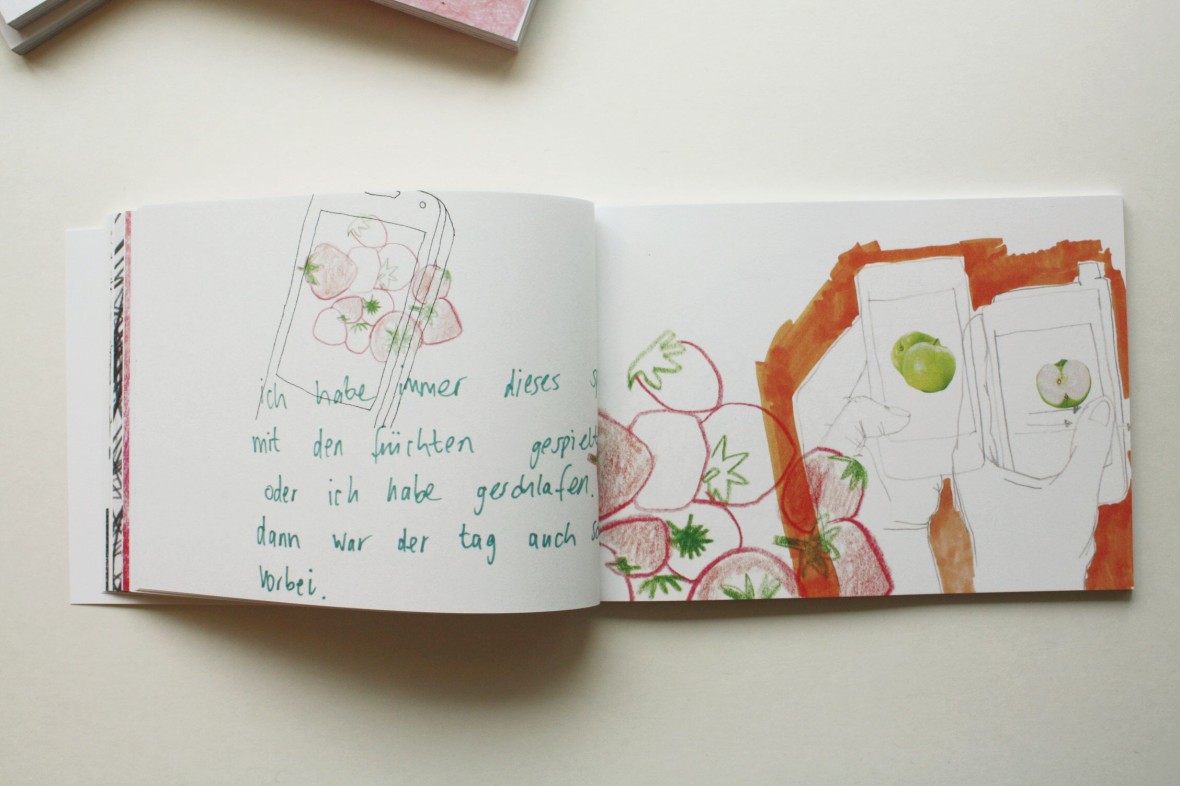 ich habe immer dieses
mit den früchten gespielt
oder ich habe geschlafen.
dann war der tag auch
vorbei.